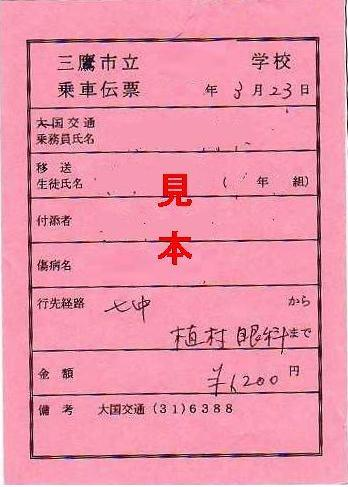 三鷹市立 学校
乗車伝票 年 3月23日
大国交通
乗務員氏名
移送
生徒氏名 ( 年 組)
付添者
見本
傷病名
行先経路 七中 から
植村眼科まで
金額 ¥1,200円
備考 大国交通(31)6388